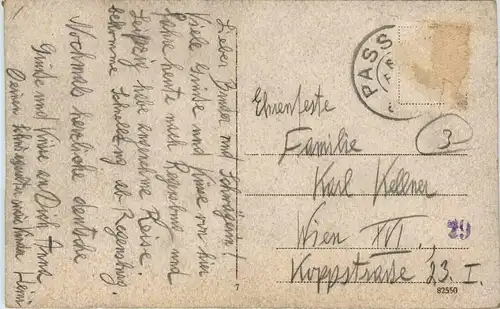 Lieber Bruder und Schwägerin!
Viele Grüße und Küsse von hier
fahre heute nach Regensburg und
Leipzig habe angenehme Reise.
bekomme Schnellzug ab Regensburg.
Nochmals herzliche deutsche
Grüße und Küsse an Dich
Deinen
PASS
Ehrenfeste
Familie
Karl Kellner
Wien XVI.,
Koppstraße 23. I.
3
29
7
82550